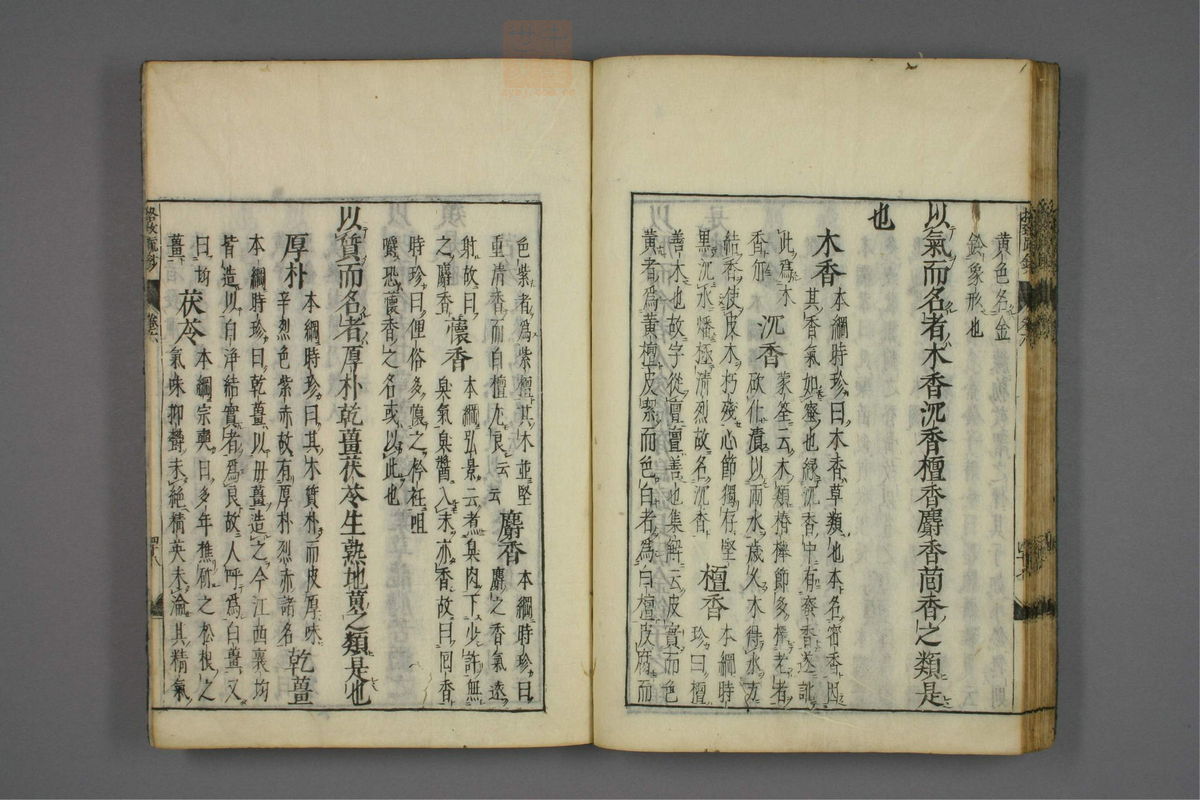 黄色名金
鈴象形也
以氣而名者木香沉香檀香麝香茴香之類是
也
木香 本綱時珍曰木香草類也本名蜜香因
其香氣如蜜也緣沉香中有蜜香遂訛
此爲木
香尓 沉香 蒙筌云木類椿櫸節多櫸老者
砍仆漬以雨水歲久木得水方
結香使皮木朽殘心節獨存堅
黒沉水燔極清烈故名沉香 檀香 本綱時
珍曰檀
善木也故字從亶亶善也集解云皮實而色
黄者爲黄檀皮潔而色白者爲白檀皮腐而
色紫者爲紫檀其木並堅
重清香而白檀尤良云云 麝香 本綱時珍曰
麝之香氣遠
射故曰
之麝香 懷香 本綱弘景云煮臭肉下少許無
臭氣臭醬入末亦香故曰囘香
時珍曰俚俗多懷之衿衽咀
嚼恐懷香之名或以此也
以質而名者厚朴乾薑茯苓生熟地黄之類是也
厚朴 本綱時珍曰其木質朴而皮厚味
辛烈色紫赤故有厚朴烈赤諸名 乾薑
本綱時珍曰乾薑以母薑造之今江西襄均
皆造以白淨結實者爲良故人呼爲白薑又
曰均
薑 茯苓 本綱宗奭曰多年樵斫之松根之
氣味抑鬱未絶精英未淪其精氣
卷六
四十八